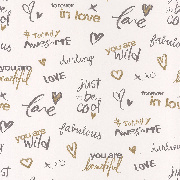 forever
in love
love
# totally
AWESOME
you are
wild
darling
fabulous
love
LOVE
just
be
cool
forever
in love
you are
beautiful
# totally
AWESOME
fabulous
you are
wild
darling
LOVE
just
be
cool
love
you are
beautiful